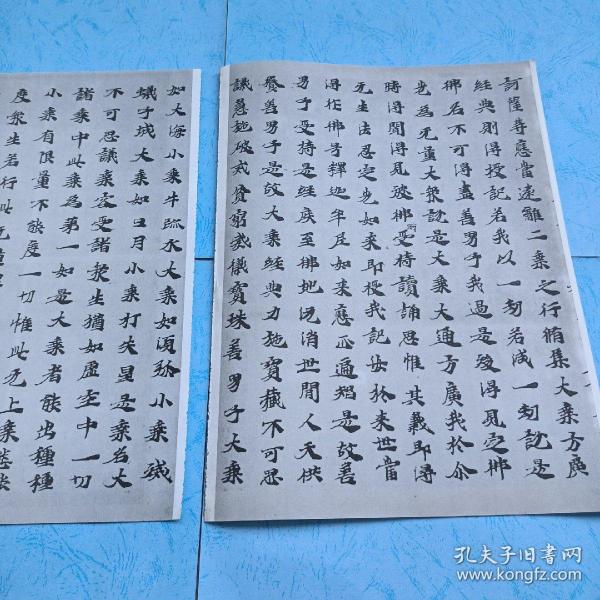 訶薩等應當遠離二乘之行脩集大乘方廣
經典則得授記若我以一劫若減一劫說是
佛名不可得盡善男子我過是後得見定佛
光為无量大衆說是大乘大通方廣我於尒
時得聞得見彼佛所受持讀誦思惟其義即得
无生法忍定光如來即授我記汝於來世當
得作佛号釋迦牟尼如來應正遍知是故善
男子受持是經疾至佛地消世間人天供
養善男子是故大乘經典力施寶藏不可思
議惠施破戒貧窮威儀寶珠善男子大乘
如大海小乘牛跡水大乘如須弥小乘
蟻子城大乘如日月小乘打火星是乘名大
不可思議乘容受諸衆生猶如虛空中一切
諸乘中此乘為第一如是大乘者能出種種
小乘有限量不能度一切惟此无上乘悉能
度衆生若行此无量
孔夫子旧书网
www.kongfz.com